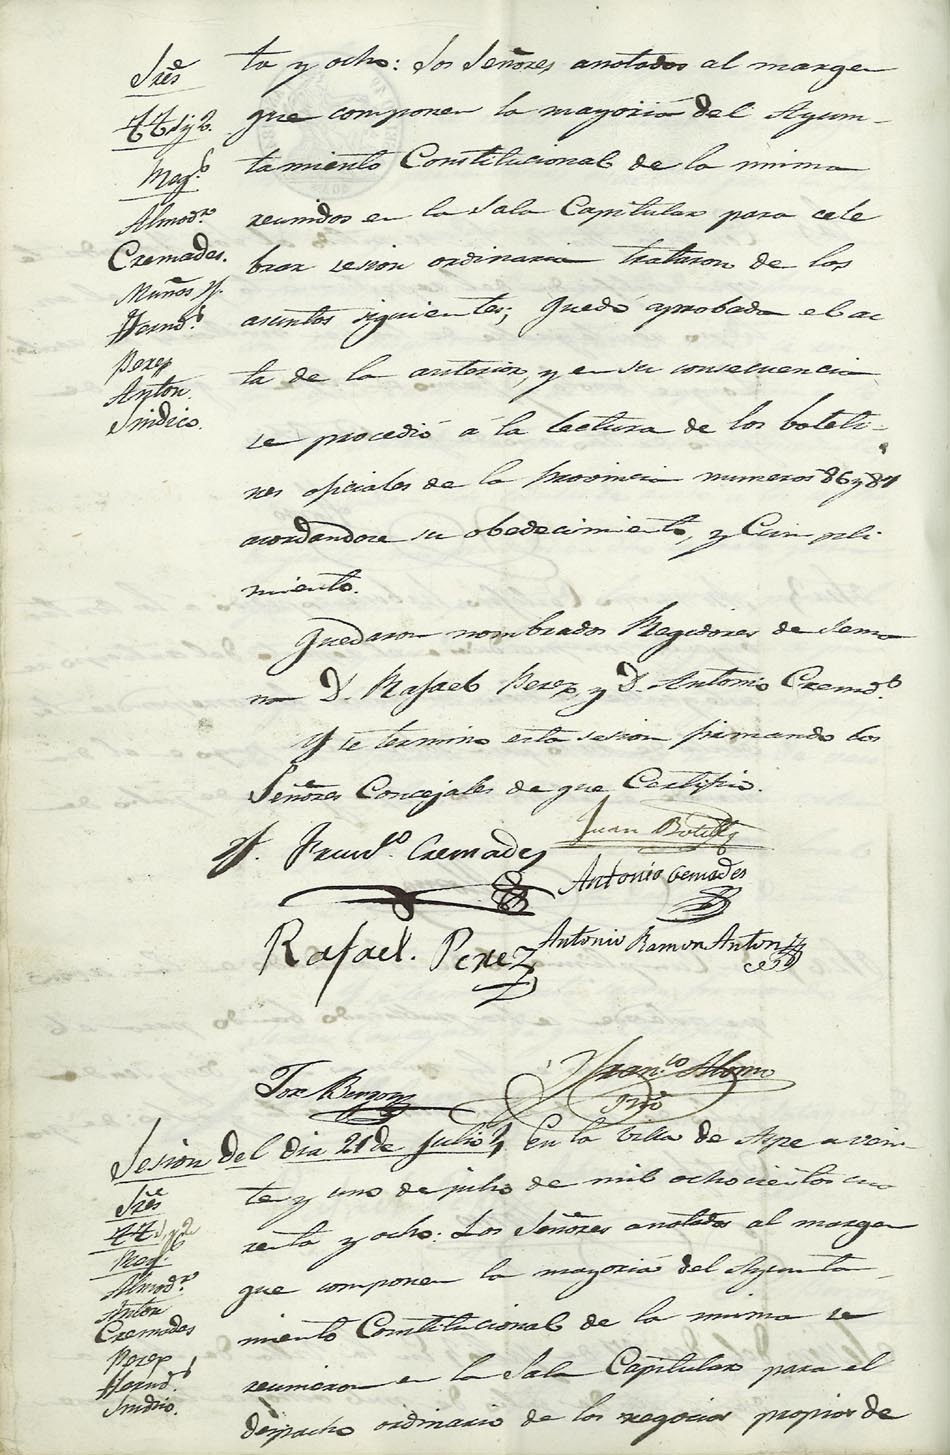 Sres
tt 1 y 2.
Reg.s
Almod.r
Cremades.
Muños y.
Hernd.s
Perez
Anton.
Sindico.
ta y ocho: Los Señores anotados al margen
que componen la mayoria del Ayun-
tamiento Constitucional de la misma
reunidos en la Sala Capitular para cele
brar sesion ordinaria trataron de los
asuntos siguientes; Quedó aprobada el ac
ta de la anterior, y en su consecuencia
se procedió á la lectura de los boleti-
nes oficiales de la Provincia numeros 86 y 87
acordandose su obedecimiento, y Cumpli
miento.
Quedaron nombrados Regidores de Sema
na D. Rafael Perez, y D. Antonio Cremd.s
Y se termino esta sesion firmando los
Señores Concejales de que Certifico.
Juan Botella
Franc.o Cremades
Antonio Cremades
Rafael. Perez
Antonio Ramon Anton
Franco Alonso
Srio
Sesion del dia 21 de Julio
En la Villa de Aspe a vein-
te y uno de julio de mil ochocientos cua
renta y ocho: Los Señores anotados al margen
que componen la mayoria del Ayunta-
miento Constitucional de la misma se
reunieron en la Sala Capitular para el
despacho ordinario de los negocios propios de
Sres
tt 1 y 2
Reg.s
Almod.r
Anton
Cremades
Perez
Hernd.s
Sindico.